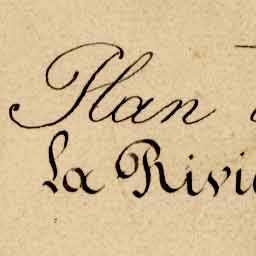 Plan
La Rivi